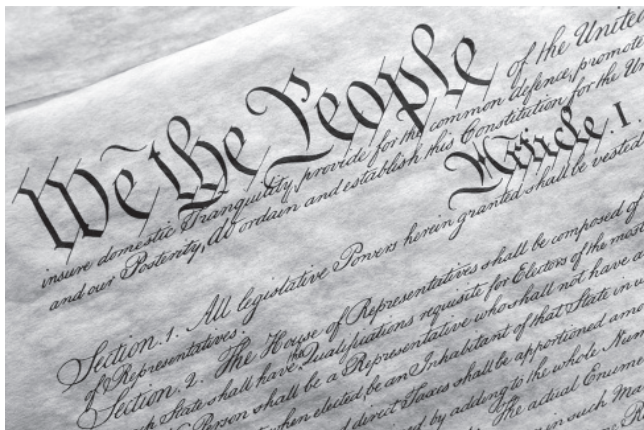 We the People of the United
insure domestic Tranquility, provide for the common defence, promote
and our Posterity, do ordain and establish this Constitution for the Un
Article. I
Section. 1. All legislative Powers herein granted shall be vested
of Representatives.
Section. 2. The House of Representatives shall be composed of
ch State shall have the Qualifications requisite for Electors of the most
Person shall be a Representative who shall not have a
when elected be an Inhabitant of that State in w
d direct Taxes shall be apportioned amo
ed by adding to the whole Num
The actual Enume
in such Ma